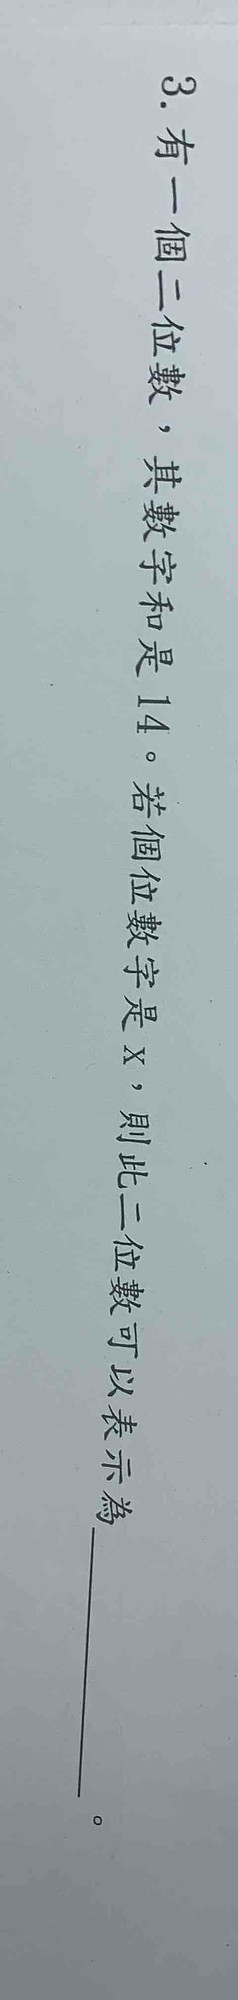 3. 有一個二位數，其數字和是14。若個位數字是x，則此二位數可以表示為＿＿＿＿＿。